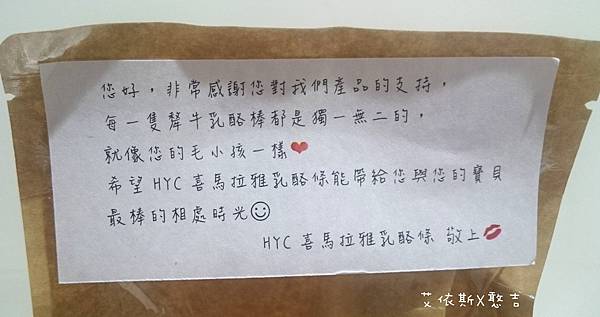 您好，非常感謝您對我們產品的支持，
每一隻犛牛乳酪棒都是獨一無二的，
就像您的毛小孩一樣❤
希望 HYC 喜馬拉雅乳酪條能帶給您與您的寶貝
最棒的相處時光☺
HYC 喜馬拉雅乳酪條 敬上💋
艾依斯X憨吉